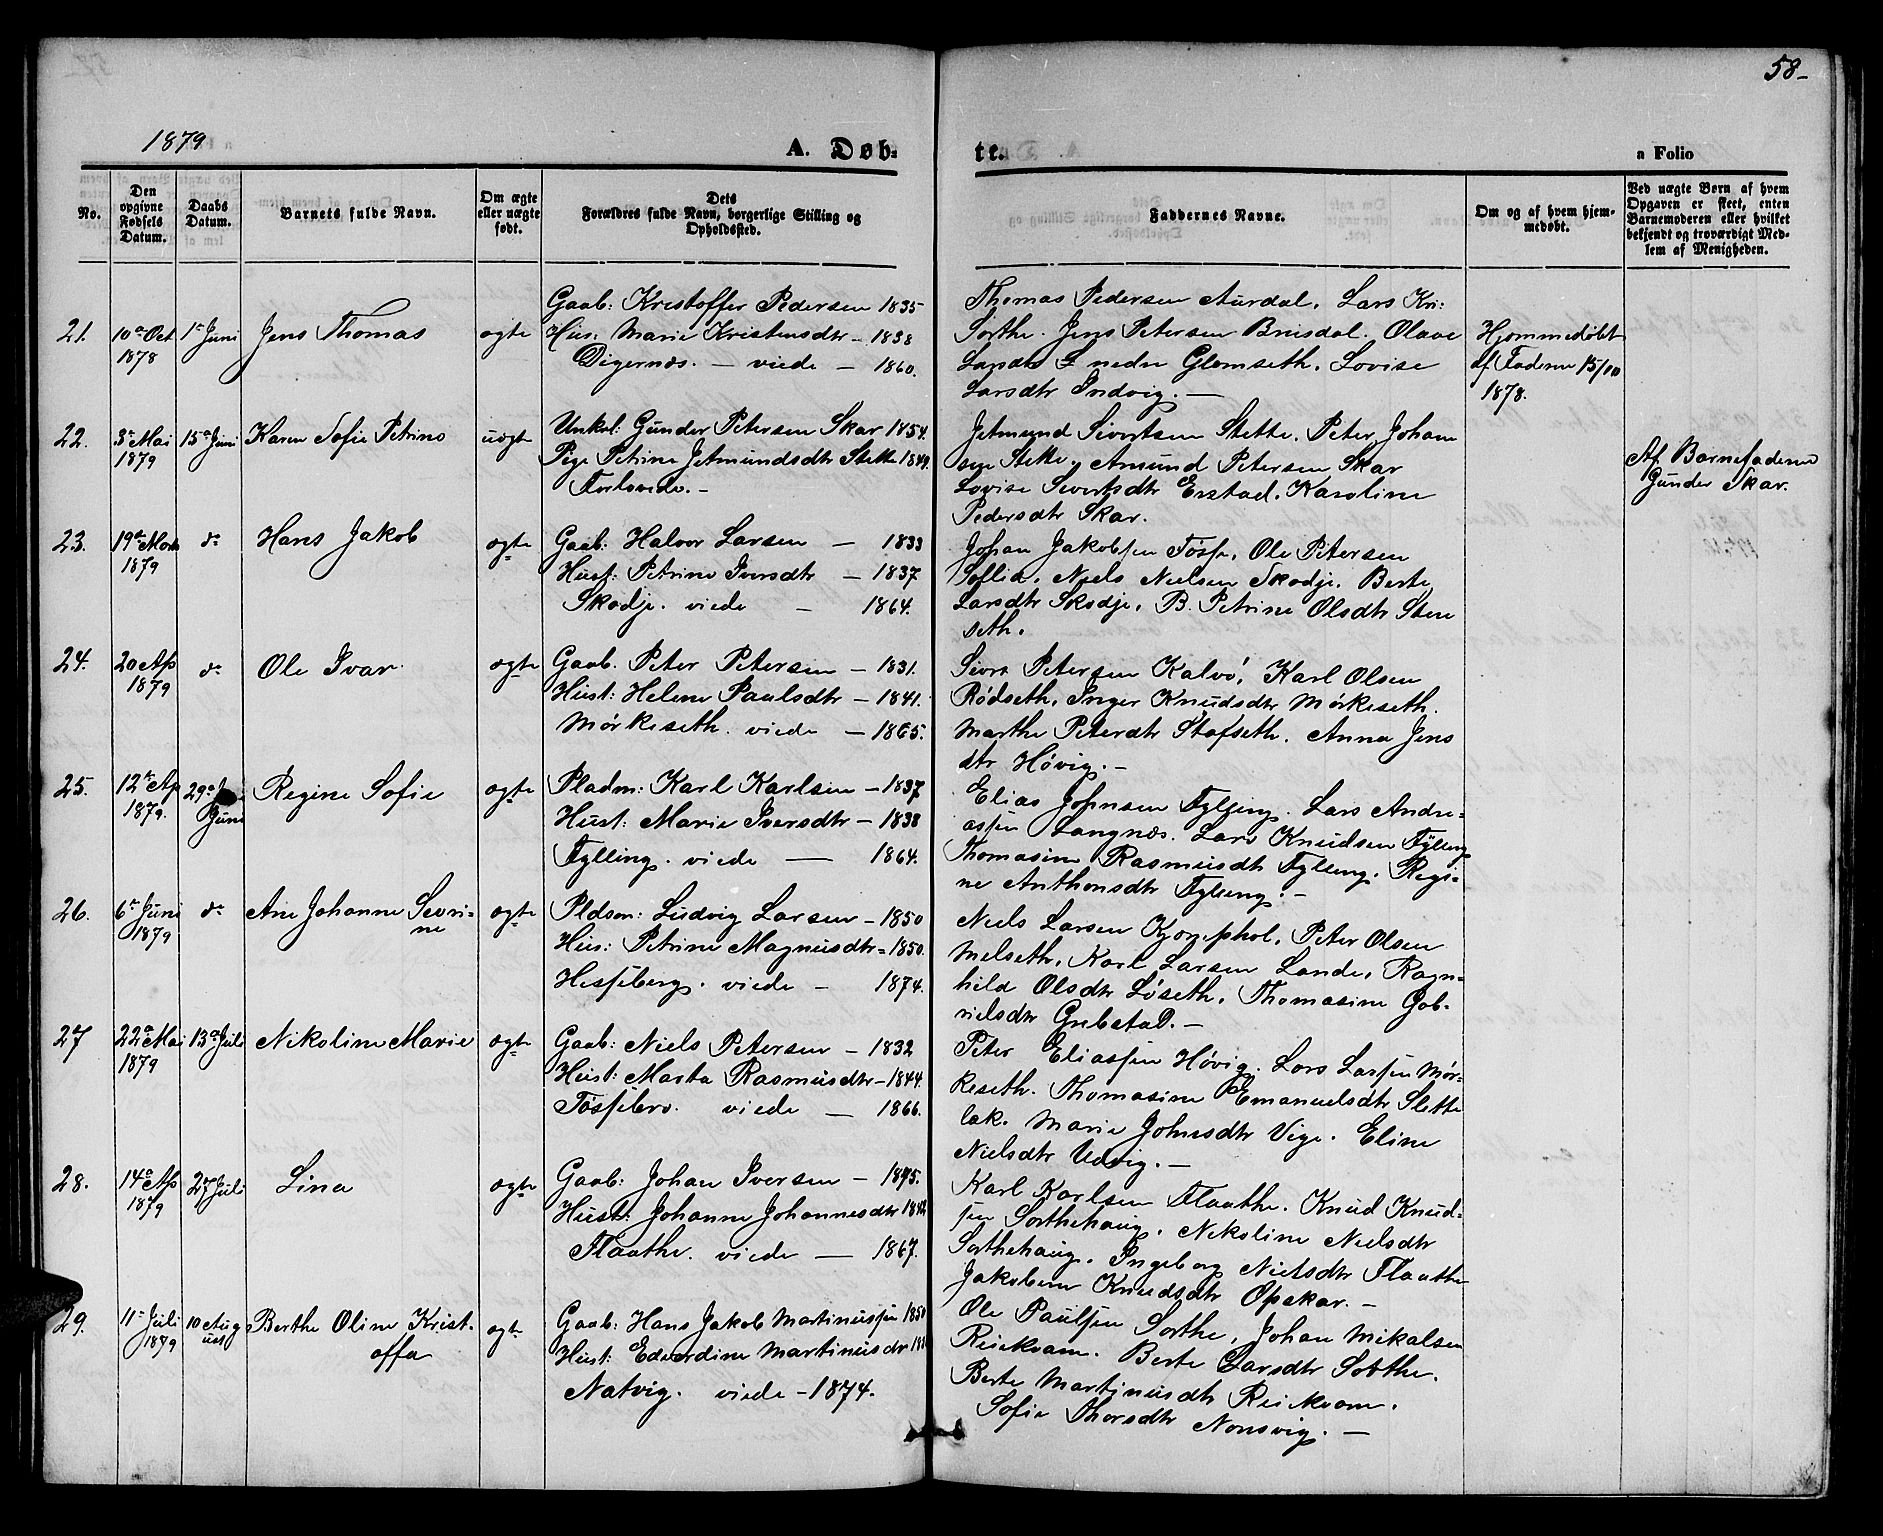 58-
1879
A. Døb-
te.
a Folio
No.
Den opgivne Fødsels Datum.
Daabs Datum.
Barnets fulde Navn.
Om ægte eller uægte født.
Dets Forældres fulde Navn, borgerlige Stilling og Opholdssted.
Faddernes Navne.
Om og af hvem hjemmedøbt.
Ved uægte Børn af hvem Opgaven er skeet, enten Barnemoderen eller hvilket bekjendt og troværdigt Medlem af Menigheden.
21. 10de Oct 1878 1ste Juni Jens Thomas ægte
Gaab: Kristoffer Pedersen 1835
Hus: Marie Kristensdtr - 1838
Digernæs. - viede - 1860.
Thomas Pedersen Aurdal. Lars Kri:
Sorthe. Jens Petersen Brusdal. Olave
nedre Glomseth. Lovise
Larsdtr Indvig. -
Hjemmedøbt
af Faderen 15/10
1878.
22. 3de Mai 1879 15de Juni Karen Sofie Petrine uægte
Unkel: Gunder Petersen Skar 1854.
Pige Petrine Jetmundsdtr Stette 1849.
Forlovede. -
Jetmund Sivertsen Stette. Peter Johan
sen Stette. Amund Petersen Skar
Lovise Sivertsdtr Erstad. Karoline
Pedersdtr Skar.
Af Barnefaderen
Gunder Skar.
23. 19de Marts 1879 do Hans Jakob ægte
Gaab: Halvor Larsen - 1833
Hust: Petrine Iversdtr - 1837
Skodje. viede - 1864.
Johan Jakobsen Tøsse. Ole Petersen
Solli. Niels Nielsen Skodje. Berte
Larsdtr Skodje. B. Petrine Olsdtr Stene
seth.
24. 20 Ap 1879 do Ole Ivar ægte
Gaab. Peter Petersen - 1831.
Hust: Helene Paulsdtr - 1841.
Mørkeseth. viede - 1865.
Sivert Petersen Kalvø. Karl Olsen
Rødseth. Inger Knudsdtr Mørkeseth.
Marthe Peterdtr Stafseth. Anna Jens
dtr Høvig. -
25. 12te Ap 1879. 29de Juni Regine Sofie ægte
Pladm: Karl Karlsen - 1837
Hust: Marie Iversdtr - 1838
Fylling. viede - 1864.
Elias Johnsen Fylling. Lars Andre=
assen Langnæs. Lars Knudsen Fylling
Thomasine Rasmusdt Fylling. Regi=
ne Anthonsdtr Fylling. -
26. 6te Juni 1879 do Ane Johanne Sevri-
ne ægte
Pldsm: Ludvig Larsen - 1850
Hus: Petrine Magnusdtr - 1850.
Hesseberg. viede - 1874.
Niels Larsen Peter Olsen
Melseth. Karl Larsen Lande. Ragn=
hild Olsdtr Løseth. Thomasine Gab-
rielsdtr Grebstad. -
27 22de Mai 1879 13de Juli Nikoline Marie ægte
Gaab: Niels Petersen - 1832
Hust: Marta Rasmusdtr - 1844.
Tøssebro. viede - 1866.
Peter Eliassen Høvig. Lars Larsen Mør-
keseth. Thomasine Emanuelsdtr Slette
bak. Marie Johnsdtr Vige. Eline
Nielsdtr Udvig. -
28. 14de Ap 1879 27 Juli Lina ægte
Gaab: Johan Iversen - 1845.
Hust: Johanne Johannesdtr 1842
Flaathe. viede - 1867.
Karl Karlsen Flaathe. Knud Knud=
sen Sorthehaug. Nikoline Nielsdtr
Sorthehaug. Ingeborg Nielsdtr Flaathe
Jakobine Knudsdtr Opskar. -
29. 11te Juli 1879 10 August Berthe Oline Krist-
offa ægte
Gaab: Hans Jakob Martinussen 1850
Hust: Edvardine Martinusdtr
Natvig. viede - 1874.
Ole Paulsen Sorthe. Johan Mikalsen
Reiekvam. Berte Larsdtr Sorthe.
Berte Martinusdt Reiekvam.
Sofie Thorsdtr Nonsvig. -